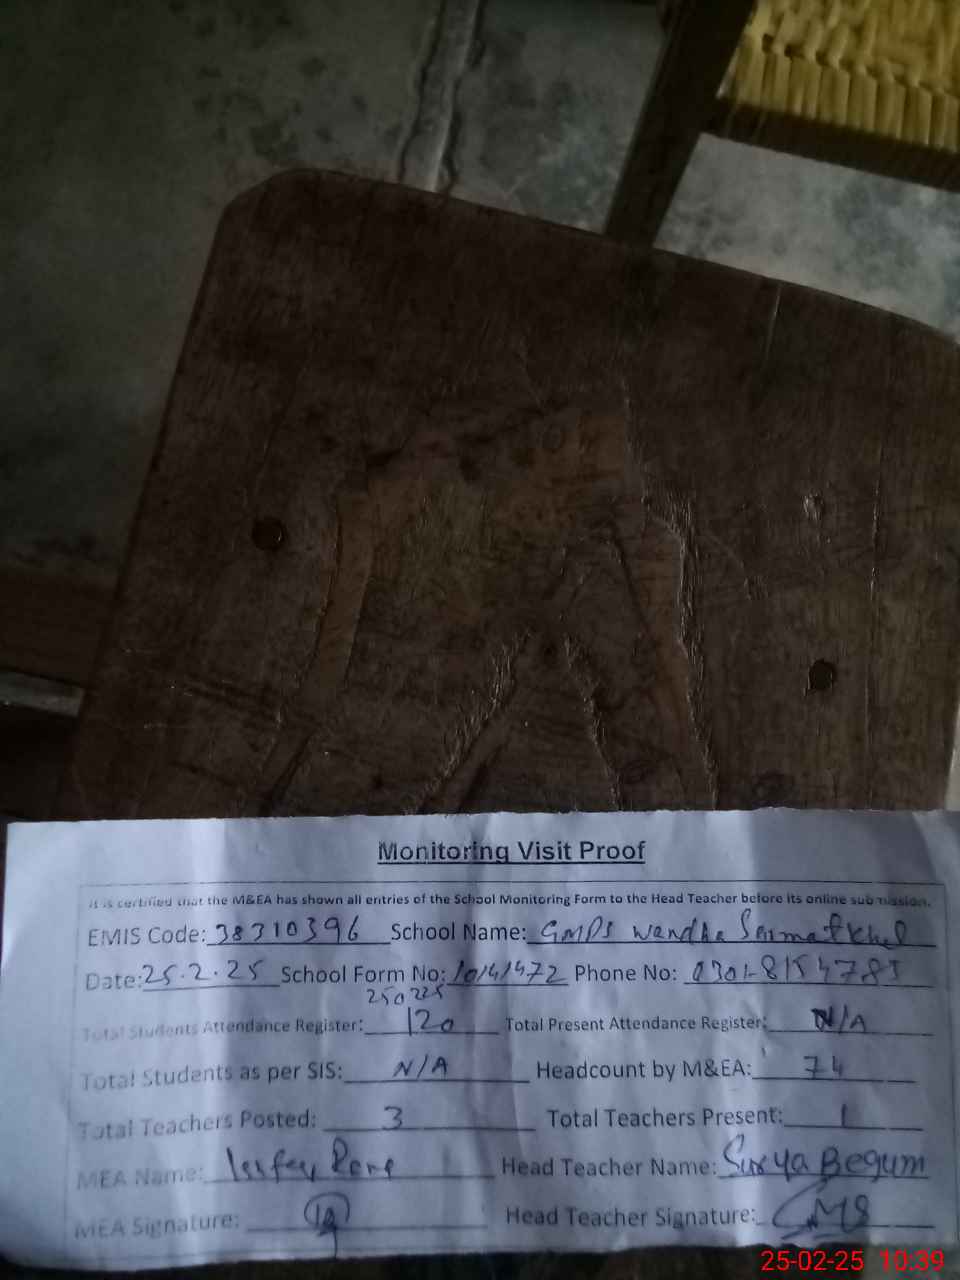 Monitoring Visit Proof
It is certified that the M&EA has shown all entries of the School Monitoring Form to the Head Teacher before its online submission.
EMIS Code: 38310396 School Name: GMPS Wandha
Date: 25.2.25 School Form No: 10141472 Phone No: 0301-8154785
250225
Total Students Attendance Register: 120 Total Present Attendance Register: N/A
Total Students as per SIS: N/A Headcount by M&EA: 74
Total Teachers Posted: 3 Total Teachers Present: 1
MEA Name: Head Teacher Name: Surya Begum
MEA Signature: Head Teacher Signature:
25-02-25 10:39